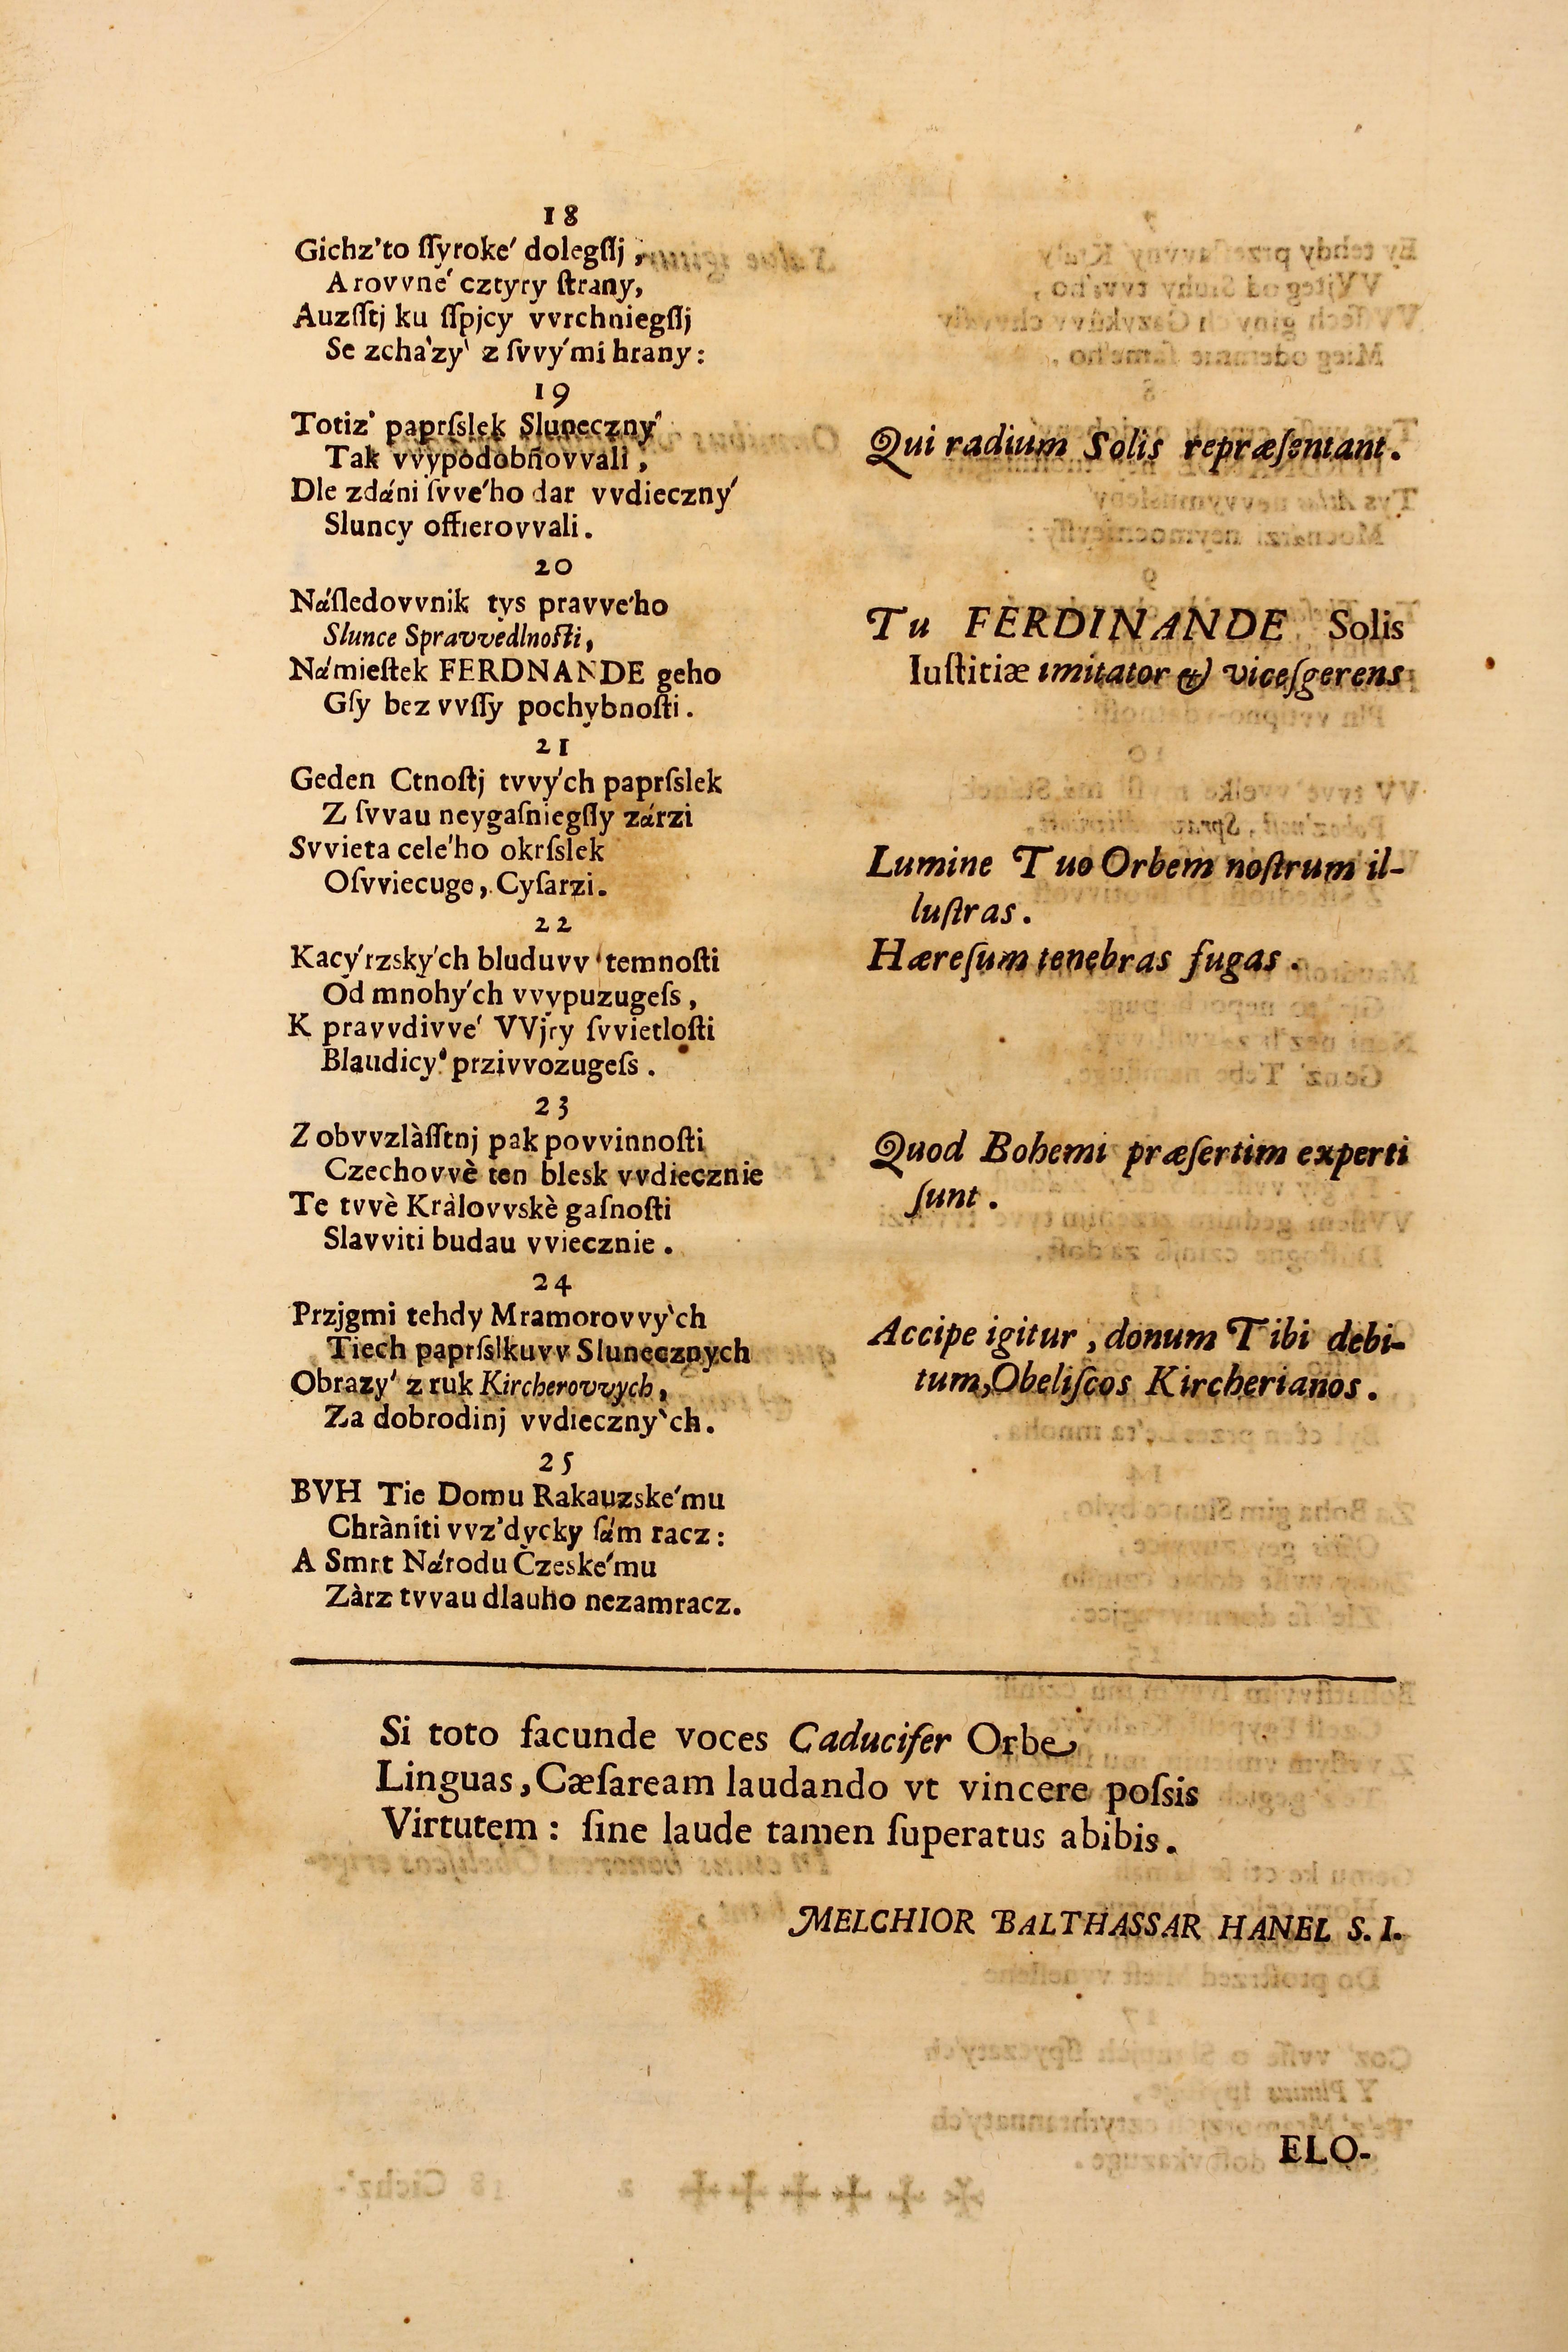 18
Gichz'to ſſyroke´ dolegſſj,
A rovvne´ cztyry ſtrany,
Auzſſtj ku ſſpjcy vvrchniegſſj
Se zcha`zy` z ſvvy´mi hrany:
19
Totiz' paprſslek Sluneczny´
Tak vvypodobňovvali,
Dle zdáni ſvve´ho dar vvdieczny´
Sluncy offierovvali.
Qui radium Solis repræſentant.
20
Náſledovvnik tys pravve´ho
Slunce Spravvedlnoſti,
Námieſtek FERDNANDE geho
Gſy bez vvſſy pochybnoſti.
Tu FERDINANDE Solis
Iuſtitiæ imitator & viceſgerens
21
Geden Ctnoſtj tvvy´ch paprſslek
Z ſvvau neygaſniegſſy zárzi
Svvieta cele´ho okrſslek
Oſvviecuge, Cyſarzi.
Lumine Tuo Orbem noſtrum il-
luſtras.
22
Kacy´rzsky´ch bluduvv temnoſti
Od mnohy´ch vvypuzugeſs,
K pravvdivve´ VVjry ſvvietloſti
Blaudicy´ przivvozugeſs.
Hæreſum tenebras fugas.
23
Z obvvzlàſſtnj pak povvinnoſti
Czechovvè ten blesk vvdiecznie
Te tvvè Kràlovvskè gaſnoſti
Slavviti budau vviecznie.
Quod Bohemi præſertim experti
ſunt.
24
Przjgmi tehdy Mramorovvy`ch
Tiech paprſslkuvv Slunecznych
Obrazy´ z ruk Kircherovvych,
Za dobrodinj vvdieczny`ch.
Accipe igitur, donum Tibi debi-
tum, Obeliſcos Kircherianos.
25
BVH Tie Domu Rakauzske´mu
Chràniti vvz'dycky ſám racz:
A Smrt Národu Čzeske´mu
Zàrz tvvau dlauho nezamracz.
Si toto facunde voces Caducifer Orbe
Linguas, Cæſaream laudando vt vincere poſsis
Virtutem: ſine laude tamen ſuperatus abibis.
MELCHIOR BALTHASSAR HANEL S. I.
ELO-